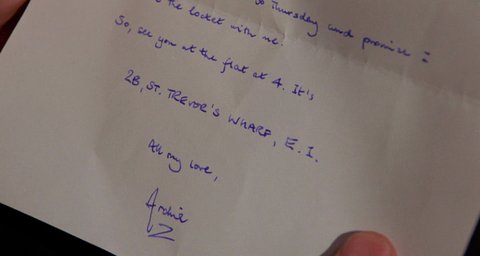 to Thursday and promise :
the locket with me.
So, see you at the flat at 4. It's
2B, ST. TREVOR'S WHARF, E.1.
All my love,
Archie